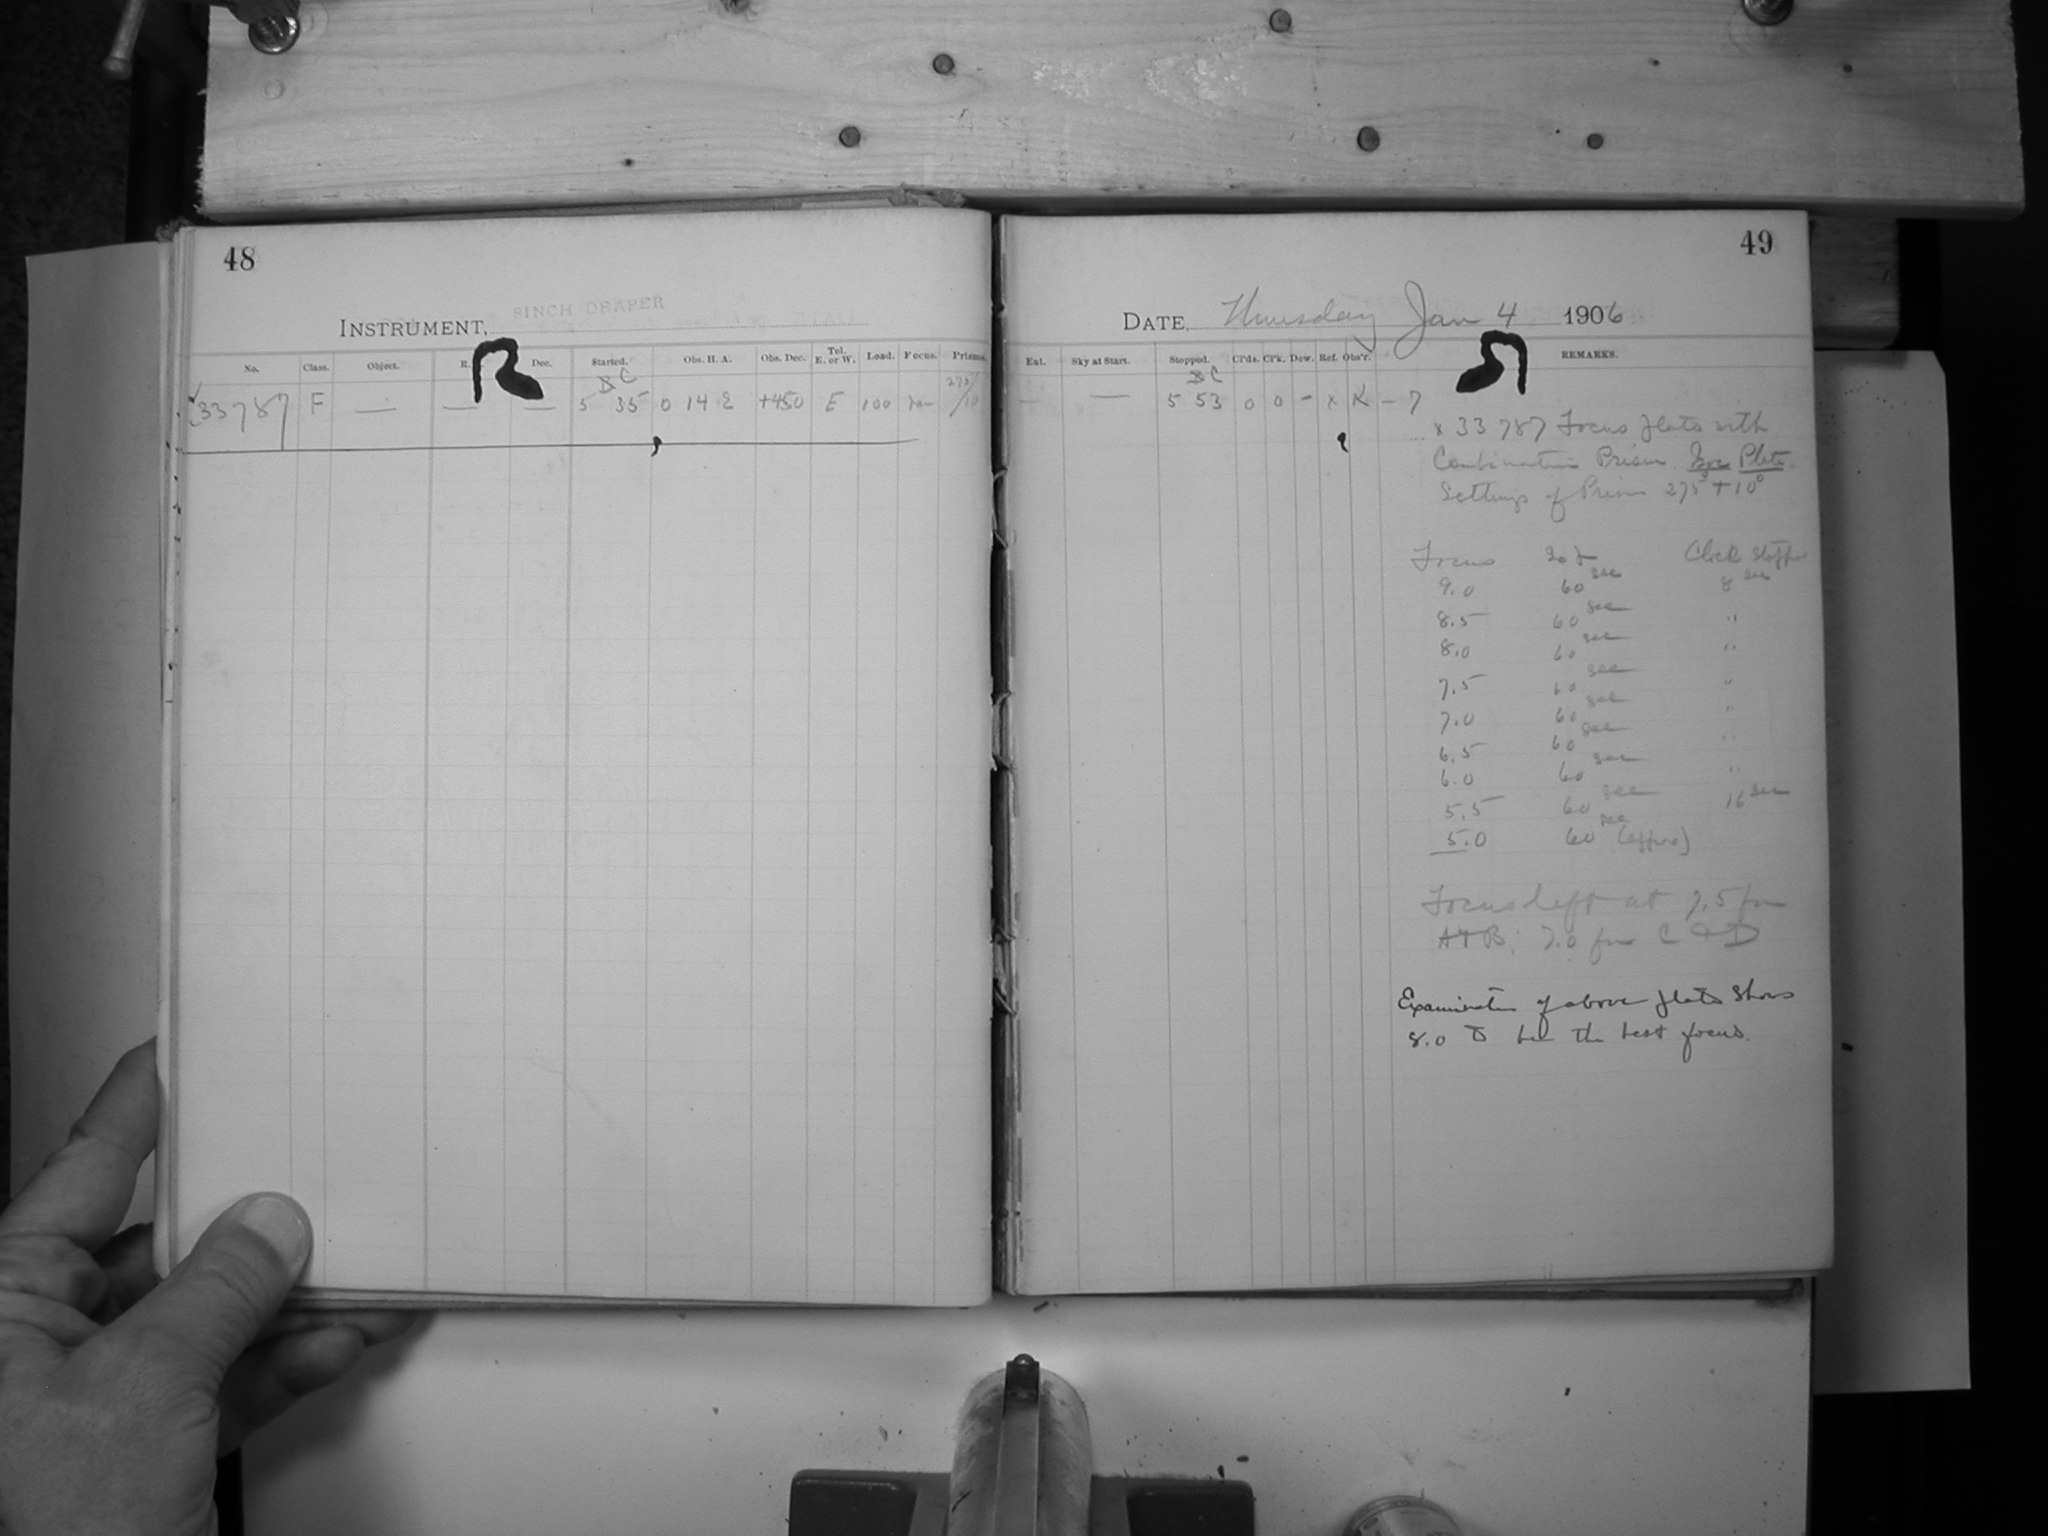 48
8INCH DRAPER
INSTRUMENT,
No. Class. Object. R. Dec. Started. Obs. H. A. Obs. Dec. Tel. E. or W. Load. Focus. Prisms.
33787 F — — — 5 35 0 14 E +450 E 100 275/10
49
DATE, Thursday Jan 4 1906
Ent. Sky at Start. Stopped. Cl'ds. Cl'k. Dew. Ref. Obs'r. REMARKS.
— — 5 53 0 0 - x K - 7
x 33787 Focus plate with
Combination Prism. Iso Plate.
Settings of Prism 275° + 10°
Focus Clock Stopped
9.0 60 sec 8 sec
8.5 60 sec "
8.0 60 sec "
7.5 60 sec "
7.0 60 sec "
6.5 60 sec "
6.0 60 sec "
5.5 60 sec 16 sec
5.0 60 sec (approx)
Focus left at 7.5 for
A + B; 7.0 for C + D
Examination of above plate shows
8.0 to be the best focus.